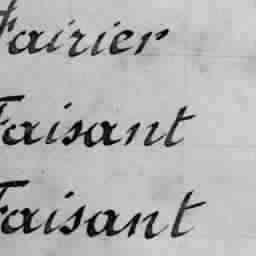 Fairier
Faisant
Faisant